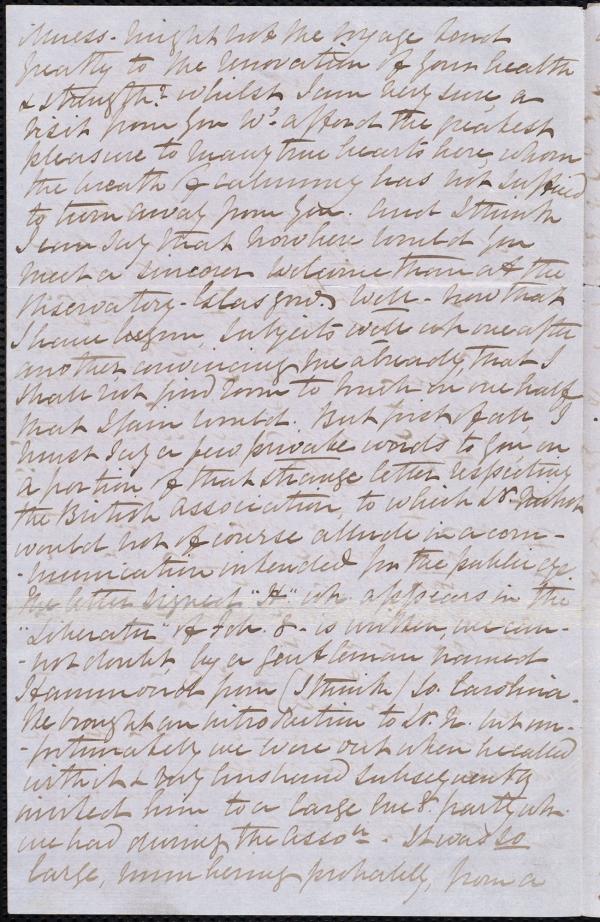 illness - might not the voyage tend
greatly to the renovation of your health
& strength? whilst I am very sure, a
visit from you wd. afford the greatest
pleasure to many true hearts here, whom
the breath of calumny has not sufficed
to turn away from you. And I think
I can say that nowhere would you
meet a sincerer welcome than at the
Observatory - Glasgow. Well - now that
I have begun, subjects rise up one after
another, convincing me already, that I
shall not find room to touch on one half
that I fain would. But first of all, I
must say a few private words to you on
a portion of that strange letter respecting
the British Association, to which Dr. Nichol
would not of course allude in a com-
-munication intended for the public eye.
The letter signed "H" wh. appears in the
"Liberator" of Feb. 8 - is written, we can-
-not doubt, by a gentleman named
Hammond from (I think) So. Carolina.
He brought an introduction to Dr. N. but un-
-fortunately we were out when he called
with it & my husband subsequently
invited him to a large eveg. party wh.
we had during the Asson. - It was so
large, numbering probably, from a